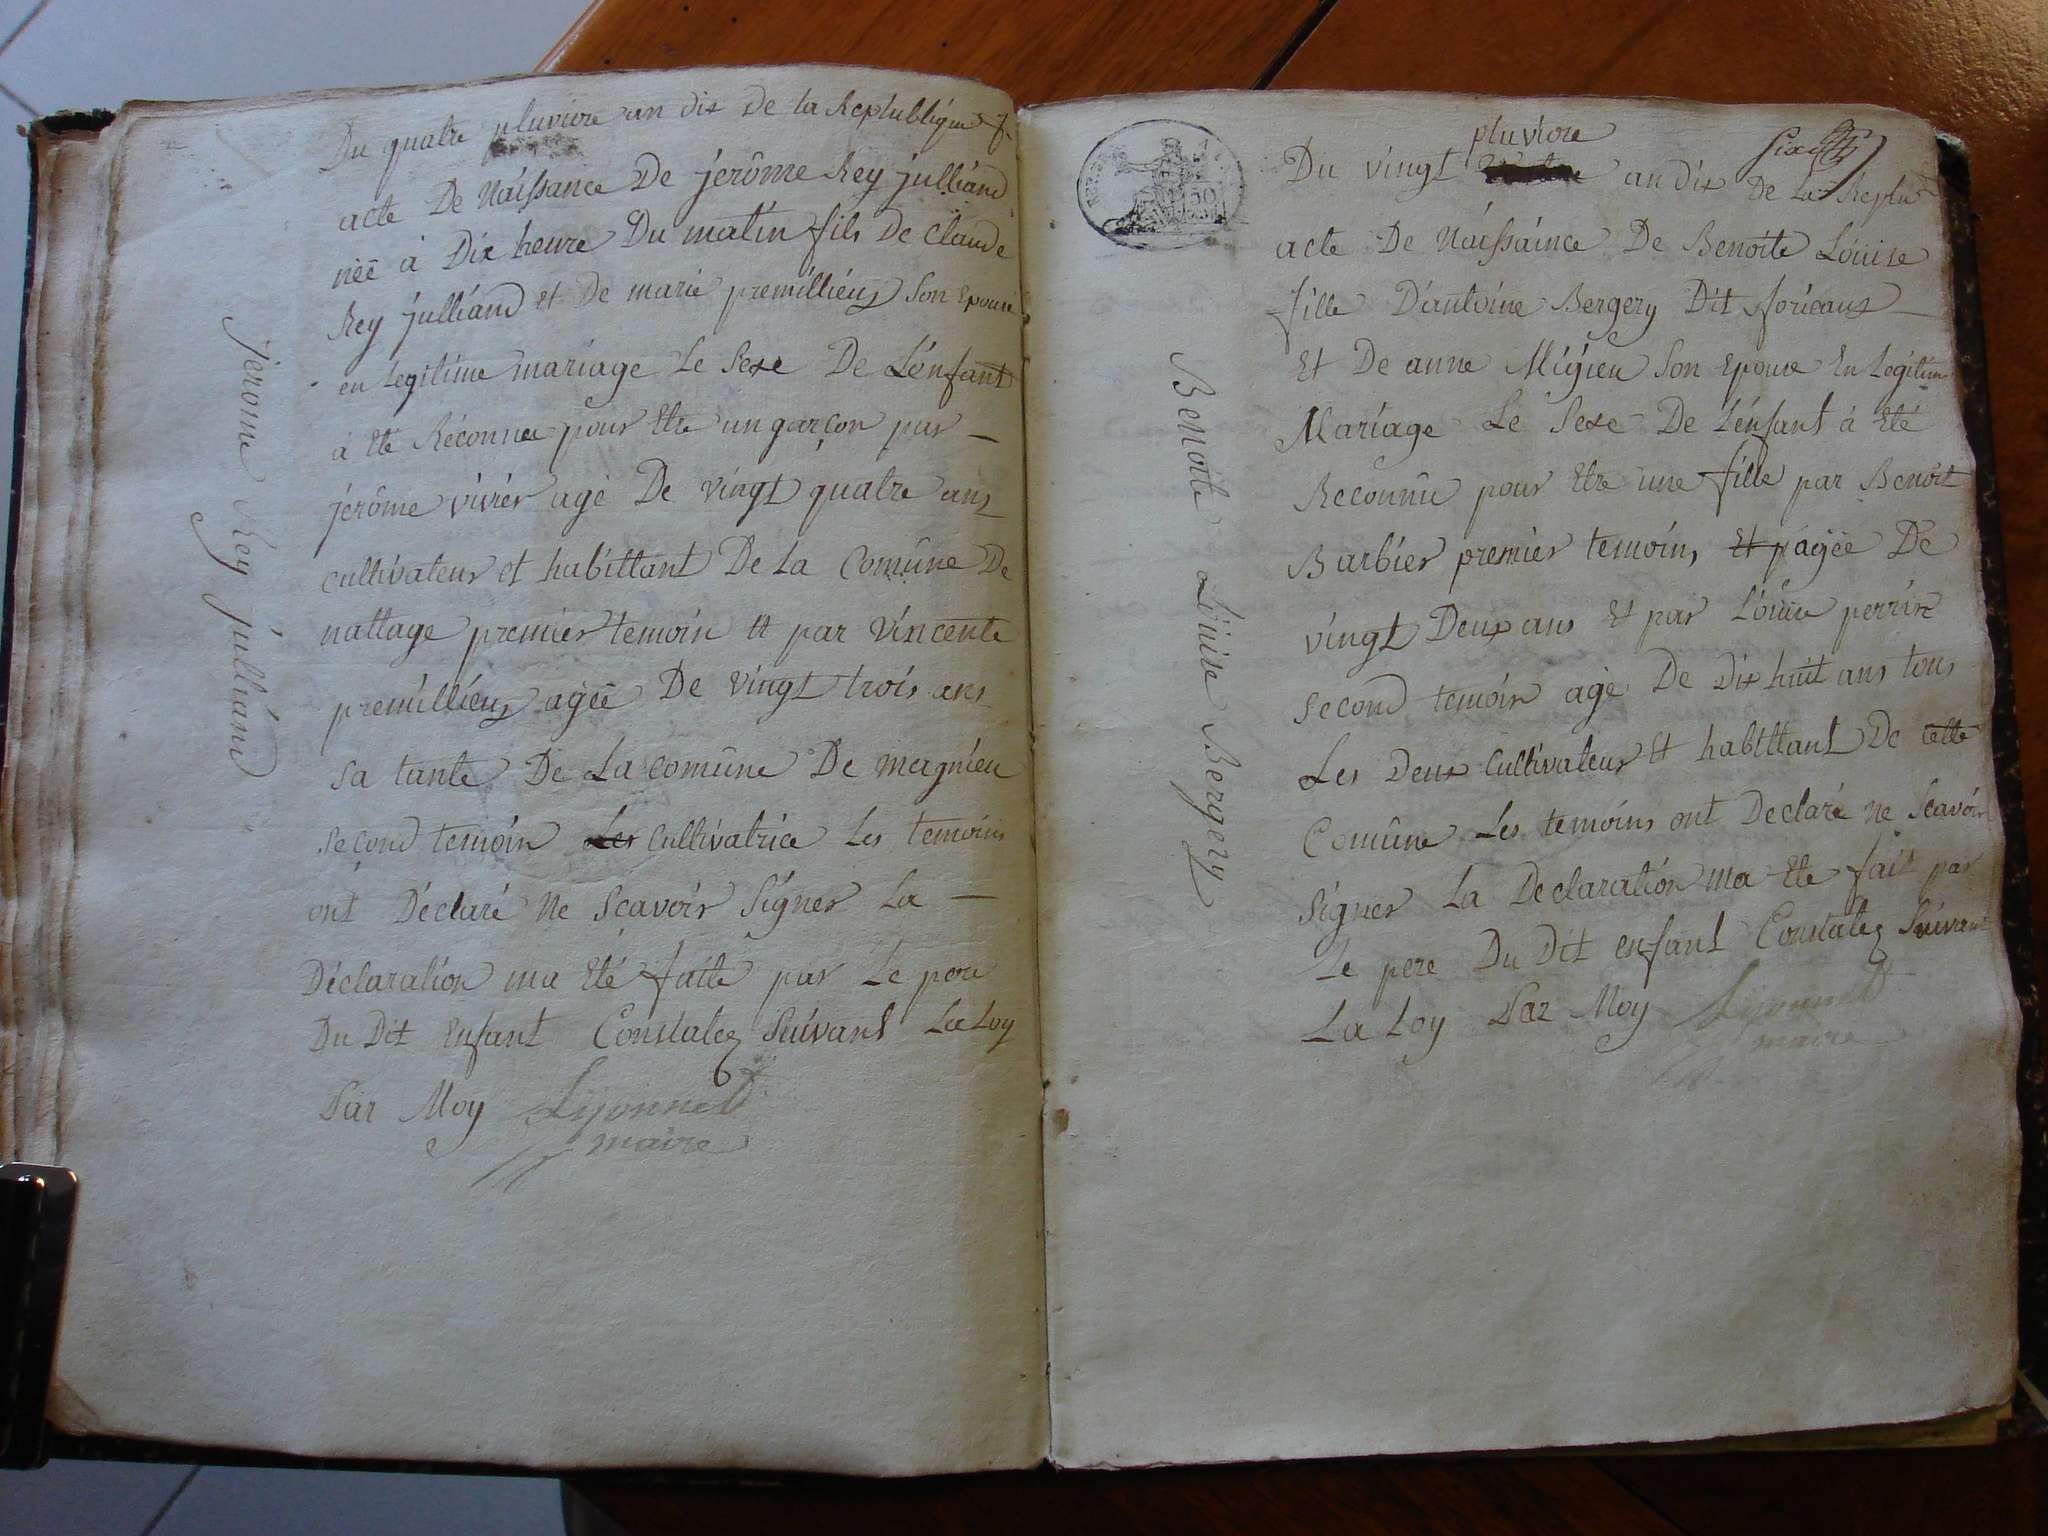 Du quatre pluviore an dix De la Replubliqúe f.
acte De Naissance De jerôme Rey julliand
néé à Dix heure Du matin fils De Claude
Rey julliand et De marie premillieu Son Epouse
en Legitime mariage Le Sexe De L'énfant
à Eté Réconnu pour Etre un garçon par —
jerôme vivier agé De vingt quatre ans
cultivateur et habittant De La Comûne De
nattage premier temoin et par Vincente
premillieu agéé De vingt trois ans
sa tante De La comûne De magnieu
second temoin Les Cultivatrice Les temoins
ont Déclaré Ne Sçavoir Signer La —
Déclaration ma Eté faite par Le pere
Du Dit Enfant Constatez Suivant La Loy
Par Moy Lyonnet
maire
jerome Rey julliand
50
pluviore
Du vingt an dix De La Replu
acte De Naissaince De Benoite Louise
fille D'antoine Bergery Dit
Et De anne Migieu Son Epouse En Legitim
Mariage Le Sexe De L'énfant à Eté
Reconnu pour Etre une fille par Benoit
Barbier premier temoin, Et p agéé De
vingt Deux ans Et par Louise perrin
second temoin agé De dix huit ans tous
Les Deux Cultivateur Et habittant De cette
Comûne Les temoins ont Declaré Ne Scavoir
Signer La Declaration ma Eté fait par
Le pere Du Dit enfant Constatez Suivant
La Loy Par Moy Lyonnet
maire
Benoite Louise Bergery